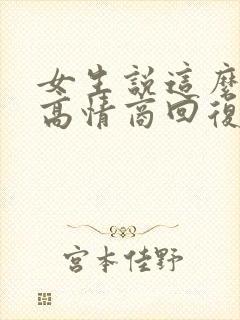 女生說這麼
高情商回復
宮本佳野